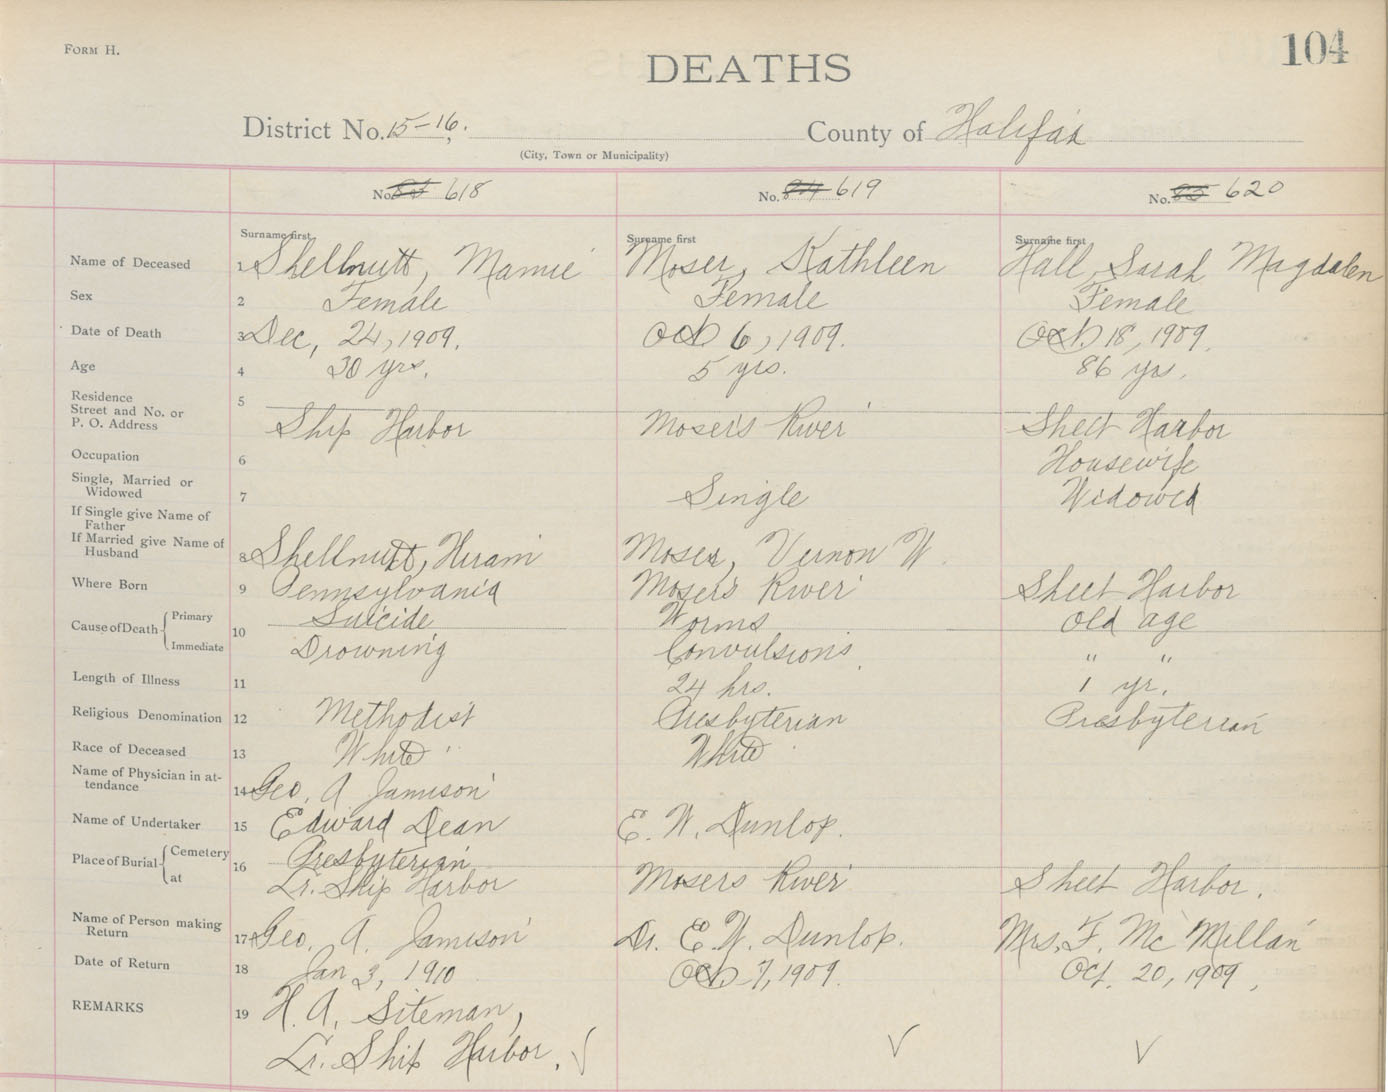 FORM H.
104
DEATHS
District No. 15-16. County of Halifax
(City, Town or Municipality)
No. 618 No. 619 No. 620
Surname first Surname first Surname first
Name of Deceased 1 Shellnutt, Mamie Moser, Kathleen Hall, Sarah Magdalen
Sex 2 Female Female Female
Date of Death 3 Dec, 24, 1909. Oct 6, 1909. Oct 18, 1909.
Age 4 30 yrs. 5 yrs. 86 yrs.
Residence
Street and No. or
P. O. Address 5 Ship Harbor Mosers River Sheet Harbor
Occupation 6 Housewife
Single, Married or
Widowed 7 Single Widowed
If Single give Name of
Father
If Married give Name of
Husband 8 Shellnutt, Hiram Moser, Vernon W.
Where Born 9 Pennsylvania Mosers River Sheet Harbor
Cause of Death Primary 10 Suicide Worms Old age
Immediate Drowning Convulsions " "
Length of Illness 11 24 hrs. 1 yr.
Religious Denomination 12 Methodist Presbyterian Presbyterian
Race of Deceased 13 White White
Name of Physician in at-
tendance 14 Geo. A Jamison
Name of Undertaker 15 Edward Dean E. W. Dunlop.
Place of Burial Cemetery 16 Presbyterian
at Lr. Ship Harbor Mosers River Sheet Harbor.
Name of Person making
Return 17 Geo. A. Jamison Dr. E. W. Dunlop. Mrs. F. McMillan
Date of Return 18 Jan 3, 1910 Oct 7, 1909. Oct. 20, 1909.
REMARKS 19 H. A. Siteman,
Lr. Ship Harbor.